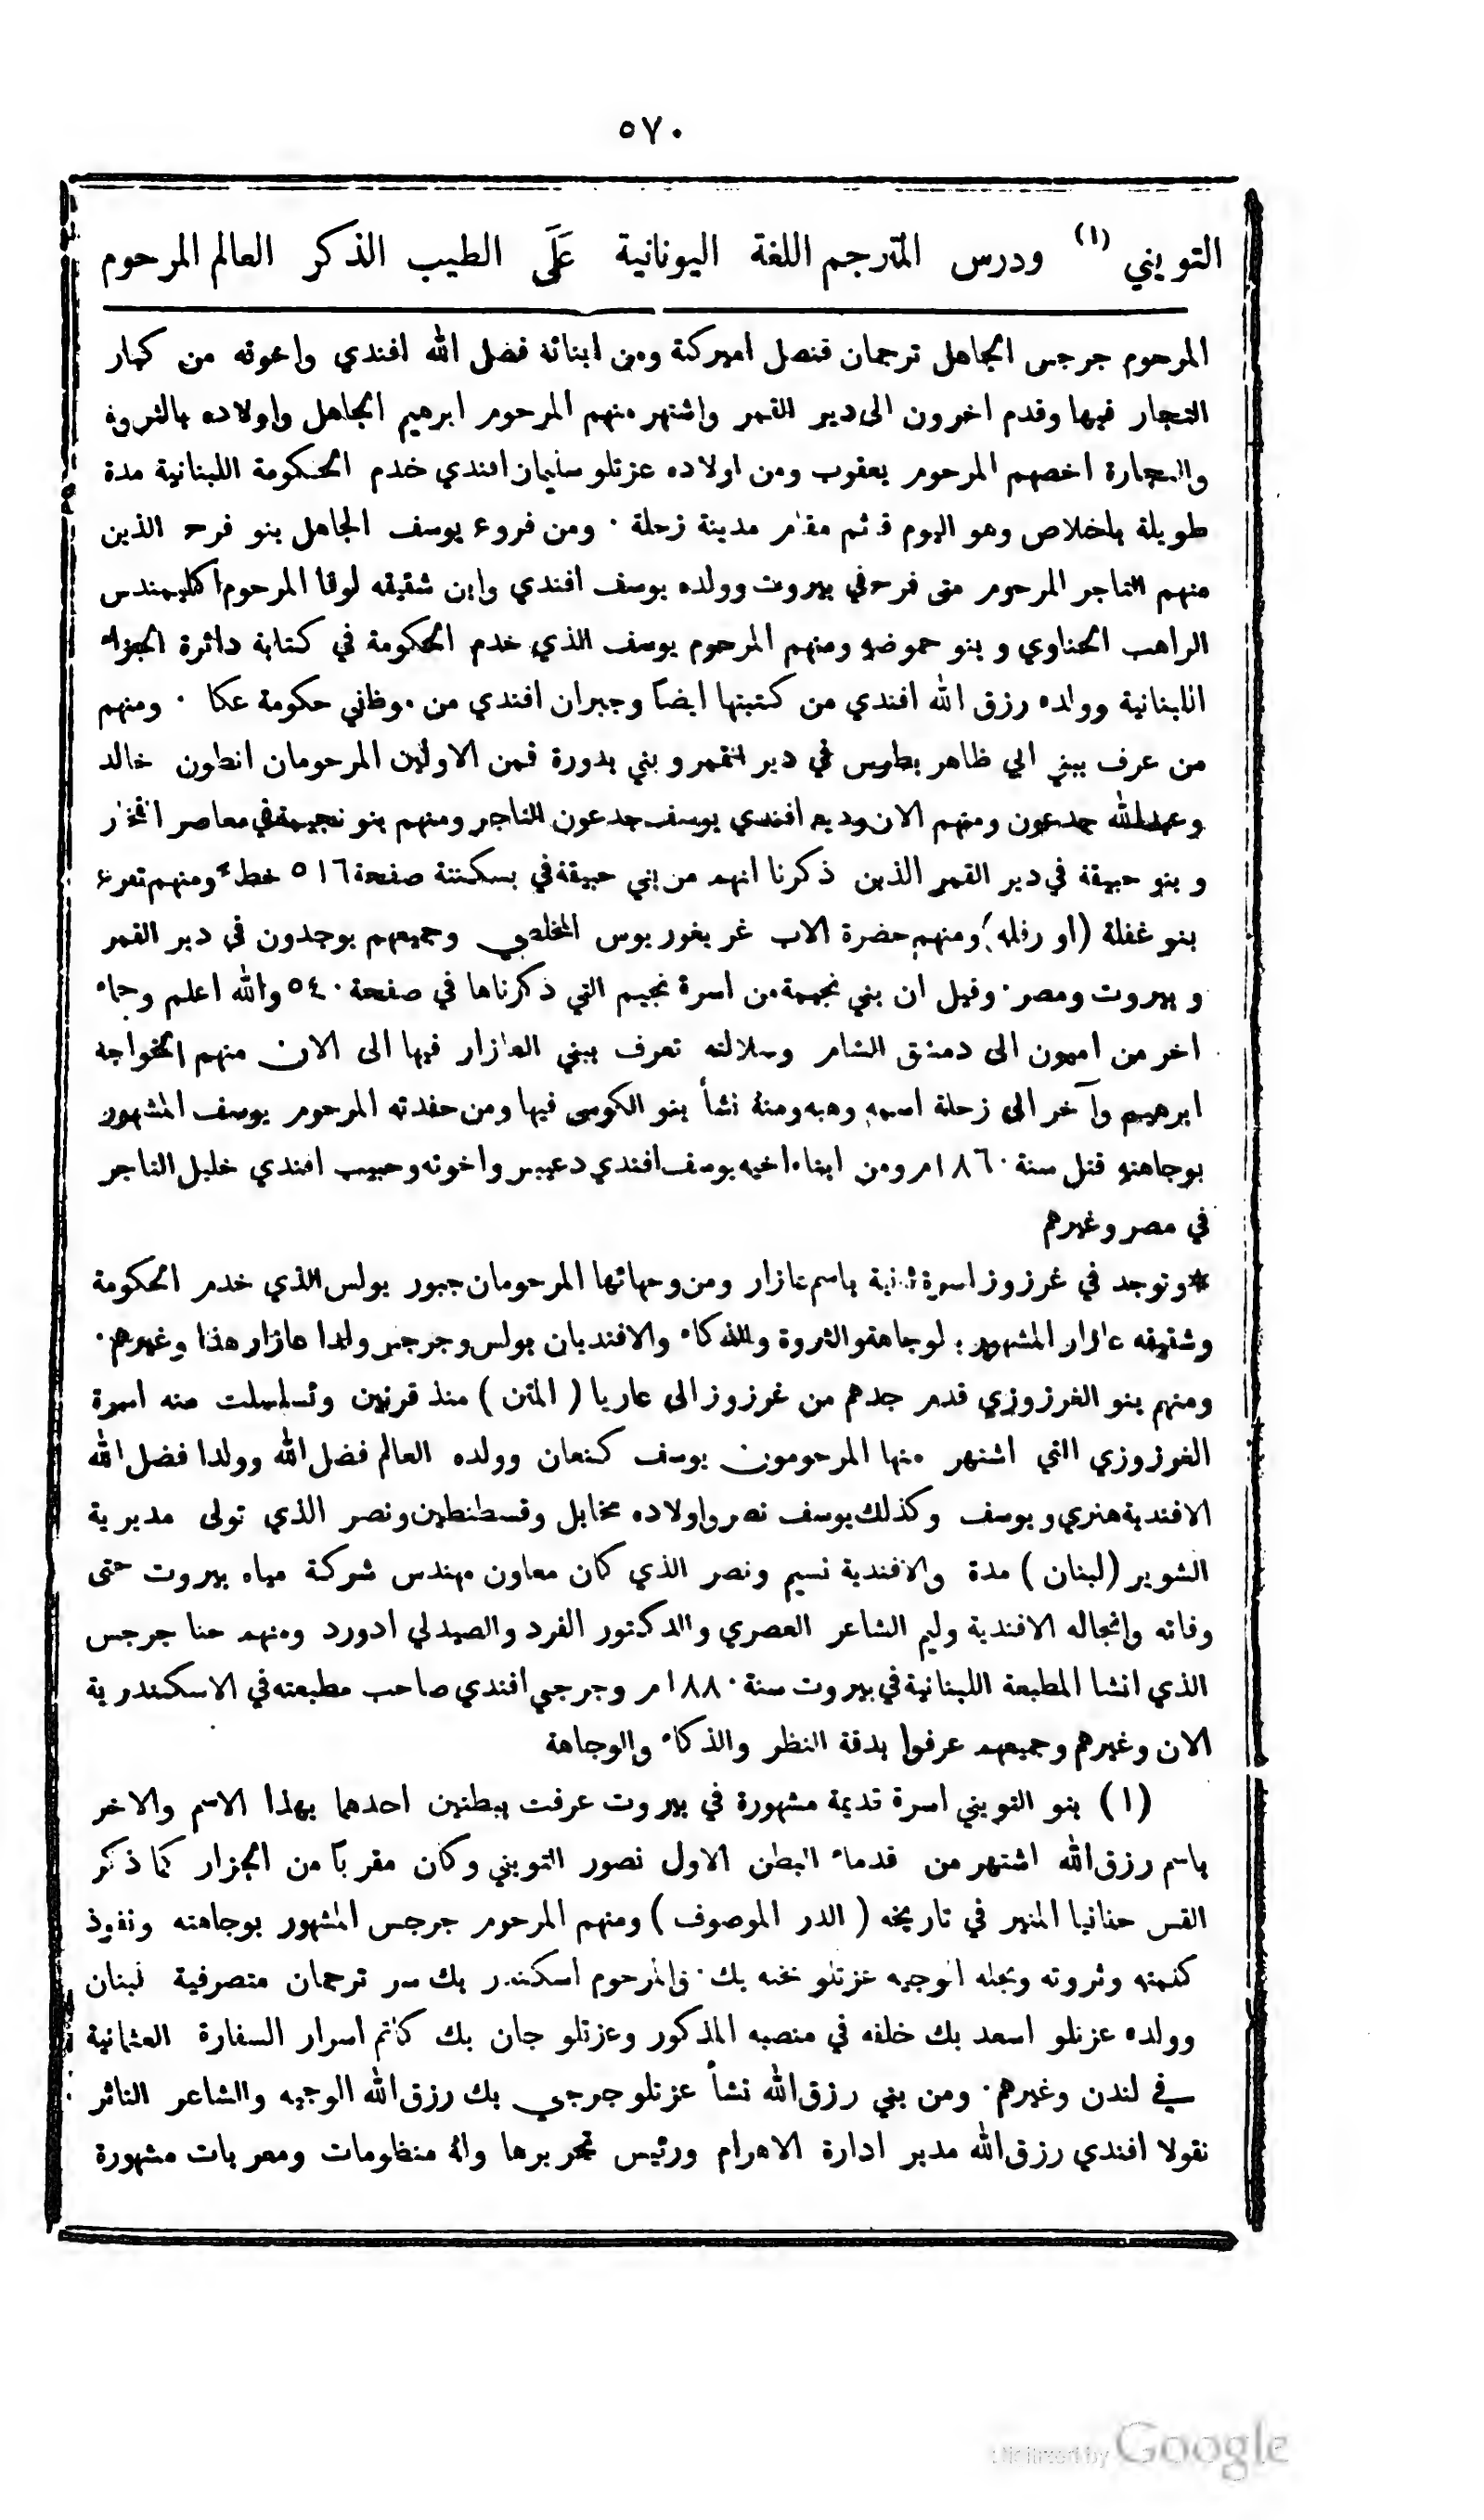 ٥٧٠
التويني (١) ودرس المترجم اللغة اليونانية عَلَى الطيب الذكر العالم المرحوم
المرحوم جرجس الجاهل ترجمان قنصل اميركة ومن ابنائه فضل الله افندي واخوته من كبار
التجار فيها وقدم اخرون الى دير القمر واشتهر منهم المرحوم ابرهيم الجاهل واولاده بالثروة
والتجارة اخصهم المرحوم يعقوب ومن اولاده عزتلو سليمان افندي خدم الحكومة اللبنانية مدة
طويلة باخلاص وهو اليوم قائم مقام مدينة زحلة ٠ ومن فروع يوسف الجاهل بنو فرح الذين
منهم التاجر المرحوم متى فرح في بيروت وولده يوسف افندي وابن شقيقه لوقا المرحوم اكليمندس
الراهب الحناوي و بنو حموضه ومنهم المرحوم يوسف الذي خدم الحكومة في كتابة دائرة الجزاء
اللبنانية وولده رزق الله افندي من كتبتها ايضاً وجبران افندي من موظفي حكومة عكا ٠ ومنهم
من عرف ببني ابي ظاهر بطرس في دير القمر و بني بدورة فمن الاولين المرحومان انطون خالد
وعبدالله جدعون ومنهم الان وديع افندي يوسف جدعون التاجر ومنهم بنو نجيمة في معاصر الفخار
و بنو حبيقة في دير القمر الذين ذكرنا انهم من بني حبيقة في بسكنتة صفحة ٥١٦ خطاء ومنهم تفرع
بنو غفلة (او رفله) ومنهم حضرة الاب غريغوريوس المخلصي وجميعهم يوجدون في دير القمر
و بيروت ومصر ٠ وقيل ان بني نجيمة من اسرة نجيم التي ذكرناها في صفحة ٥٤٠ والله اعلم وجاء
اخر من اميون الى دمشق الشام وسلالته تعرف ببني العازار فيها الى الان منهم الخواجه
ابرهيم وآخر الى زحلة اسمه وهبه ومنه نشأ بنو الكوسى فيها ومن حفدته المرحوم يوسف المشهور
بوجاهته قتل سنة ١٨٦٠م ومن ابناء اخيه يوسف افندي دعيبس واخوته وحبيب افندي خليل التاجر
في مصر وغيرهم
*وتوجد في غرزوز اسرة ثانية باسم عازار ومن وجهائها المرحومان جبور بولس الذي خدم الحكومة
وشقيقه عازار المشهور بالوجاهة والثروة والذكاء والافنديان بولس وجرجس ولدا عازار هذا وغيرهم ٠
ومنهم بنو الغرزوزي قدم جدهم من غرزوز الى عاريا (المتن) منذ قرنين وتسلسلت منه اسرة
الغرزوزي التي اشتهر منها المرحومون يوسف كنعان وولده العالم فضل الله وولدا فضل الله
الافندية هنري ويوسف وكذلك يوسف نصر واولاده مخايل وقسطنطين ونصر الذي تولى مديرية
الشوير (لبنان) مدة والافندية نسيم ونصر الذي كان معاون مهندس شركة مياه بيروت حتى
وفاته وانجاله الافندية وليم الشاعر العصري والدكتور الفرد والصيدلي ادورد ومنهم حنا جرجس
الذي انشا المطبعة اللبنانية في بيروت سنة ١٨٨٠م وجرجي افندي صاحب مطبعته في الاسكندرية
الان وغيرهم وجميعهم عرفوا بدقة النظر والذكاء والوجاهة
(١) بنو التويني اسرة قديمة مشهورة في بيروت عرفت ببطنين احدهما بهذا الاسم والاخر
باسم رزق الله اشتهر من قدماء البطن الاول نصور التويني وكان مقرباً من الجزار كما ذكر
القس حنانيا المنير في تاريخه (الدر الموصوف) ومنهم المرحوم جرجس المشهور بوجاهته ونفوذ
كلمته وثروته ونجله الوجيه عزتلو نخله بك ٠ والمرحوم اسكندر بك سر ترجمان متصرفية لبنان
وولده عزتلو اسعد بك خلفه في منصبه المذكور وعزتلو جان بك كاتم اسرار السفارة العثمانية
في لندن وغيرهم ٠ ومن بني رزق الله نشأ عزتلو جرجي بك رزق الله الوجيه والشاعر الناثر
نقولا افندي رزق الله مدير ادارة الاهرام ورئيس تحريرها وله منظومات ومعربات مشهورة
Digitized by Google